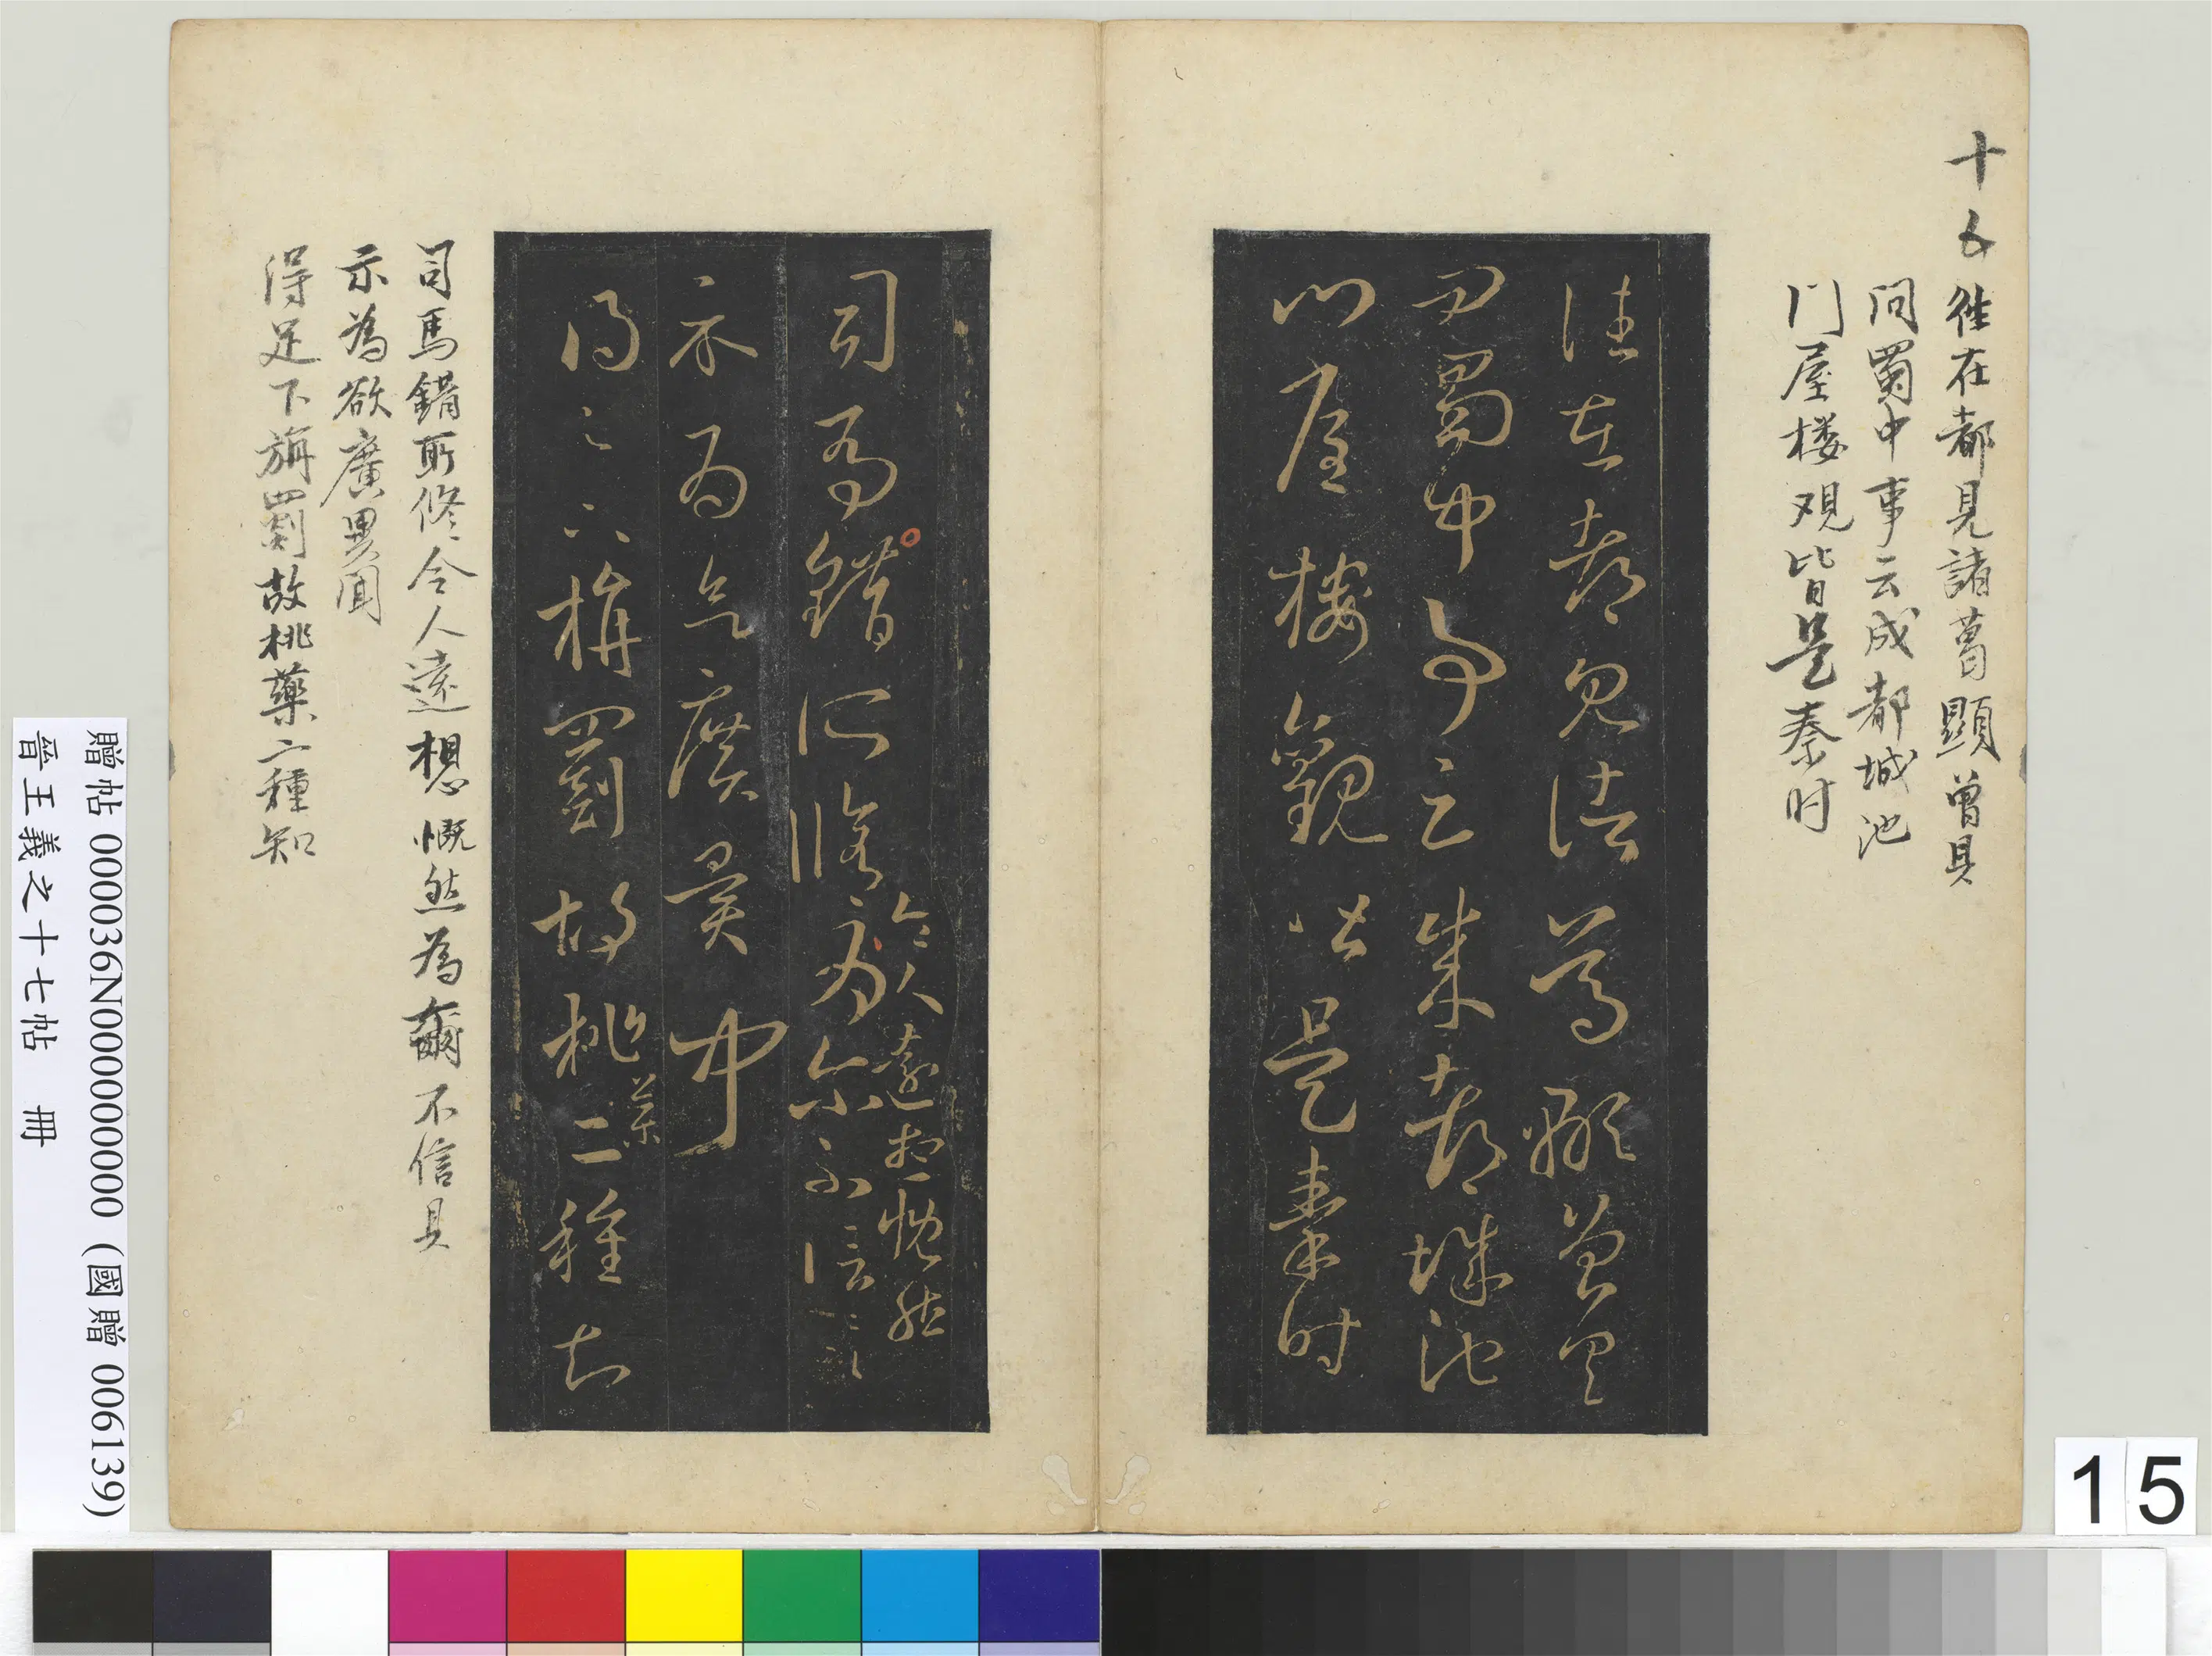 十五 徃在都見諸葛顯曾具
問蜀中事云成都城池
門屋楼观皆是秦时
往在都見諸葛顒曾具
問蜀中事云成都城池
門屋樓觀皆是秦时
令人遠想慨然
司馬錯所脩為尔不信一一
示為欲廣異聞
得足下旃罽胡桃藥二種知
司馬錯所修令人遠想慨然為爾不信具
示為欲廣異聞
得足下旃罽故桃藥二種知
贈帖 000036N000000000 (國贈 006139)
晉王羲之十七帖 冊
15